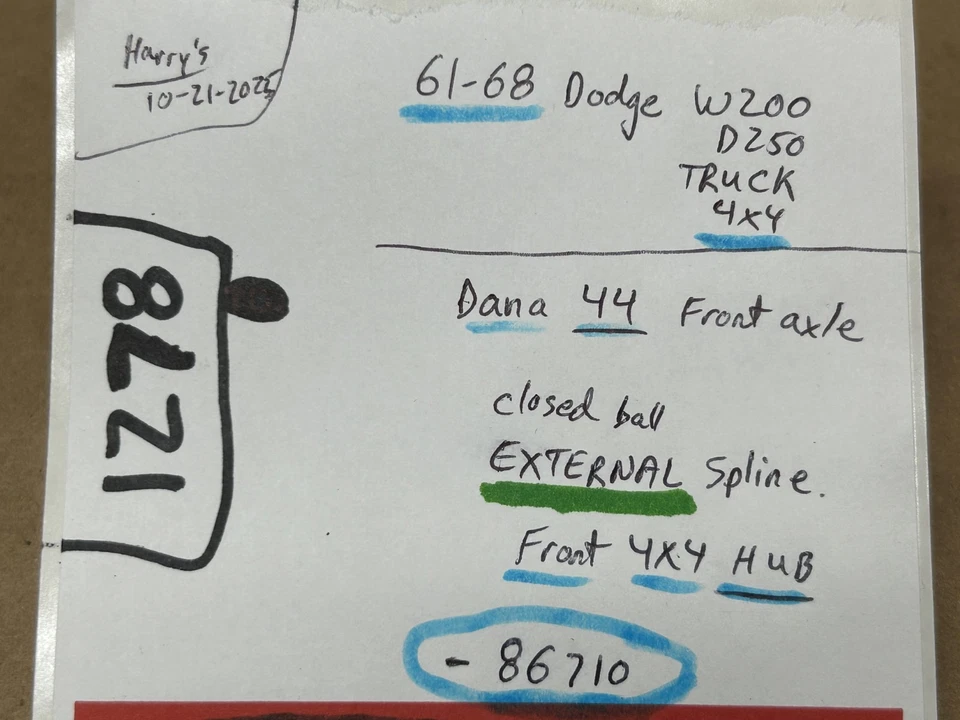 Harry's
10-21-2025
61-68 Dodge W200
D250
TRUCK
4x4
1278
Dana 44 Front axle
closed ball
EXTERNAL Spline.
Front 4X4 HUB
- 86710